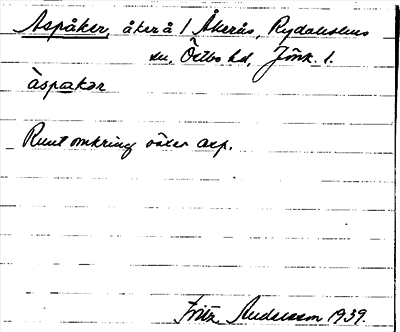 Aspåker, åker å 1 Åkerås, Rydaholms
sn, Östbo hd, Jönk. l.
àspakər
Runt omkring växer asp.
Fritz Andersson 1939.